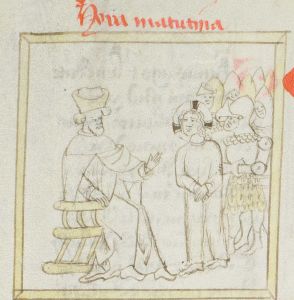 Hora matutina